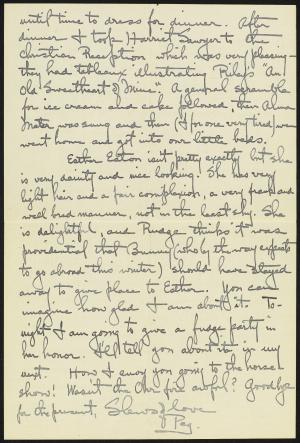 until time to dress for dinner. After
dinner I took Harriet Sawyer to the
Christian Reception which was very pleasing -
they had tableaux illustrating Riley's "An
Old Sweetheart of Mine". A general scramble
for ice cream and cake followed then Alma
Mater was sung and then (I for one very tired) we
went home and got into our little beds.
Esther Eaton isn't pretty exactly but she
is very dainty and nice looking. She has very
light hair and a fair complexion, a very frank and
well bred manner, not in the least shy. She
is delightful, and Pudge thinks it was
providential that Bunny (who by the way expects
to go abroad this winter) should have stayed
away to give place to Esther. You can
imagine how glad I am about it. To-
night I am going to give a fudge party in
her honor. I'll tell you about it in my
next. How I envy you going to the horse
show! Wasn't the fire awful? Goodbye
for the present, Slews of love
Peg.